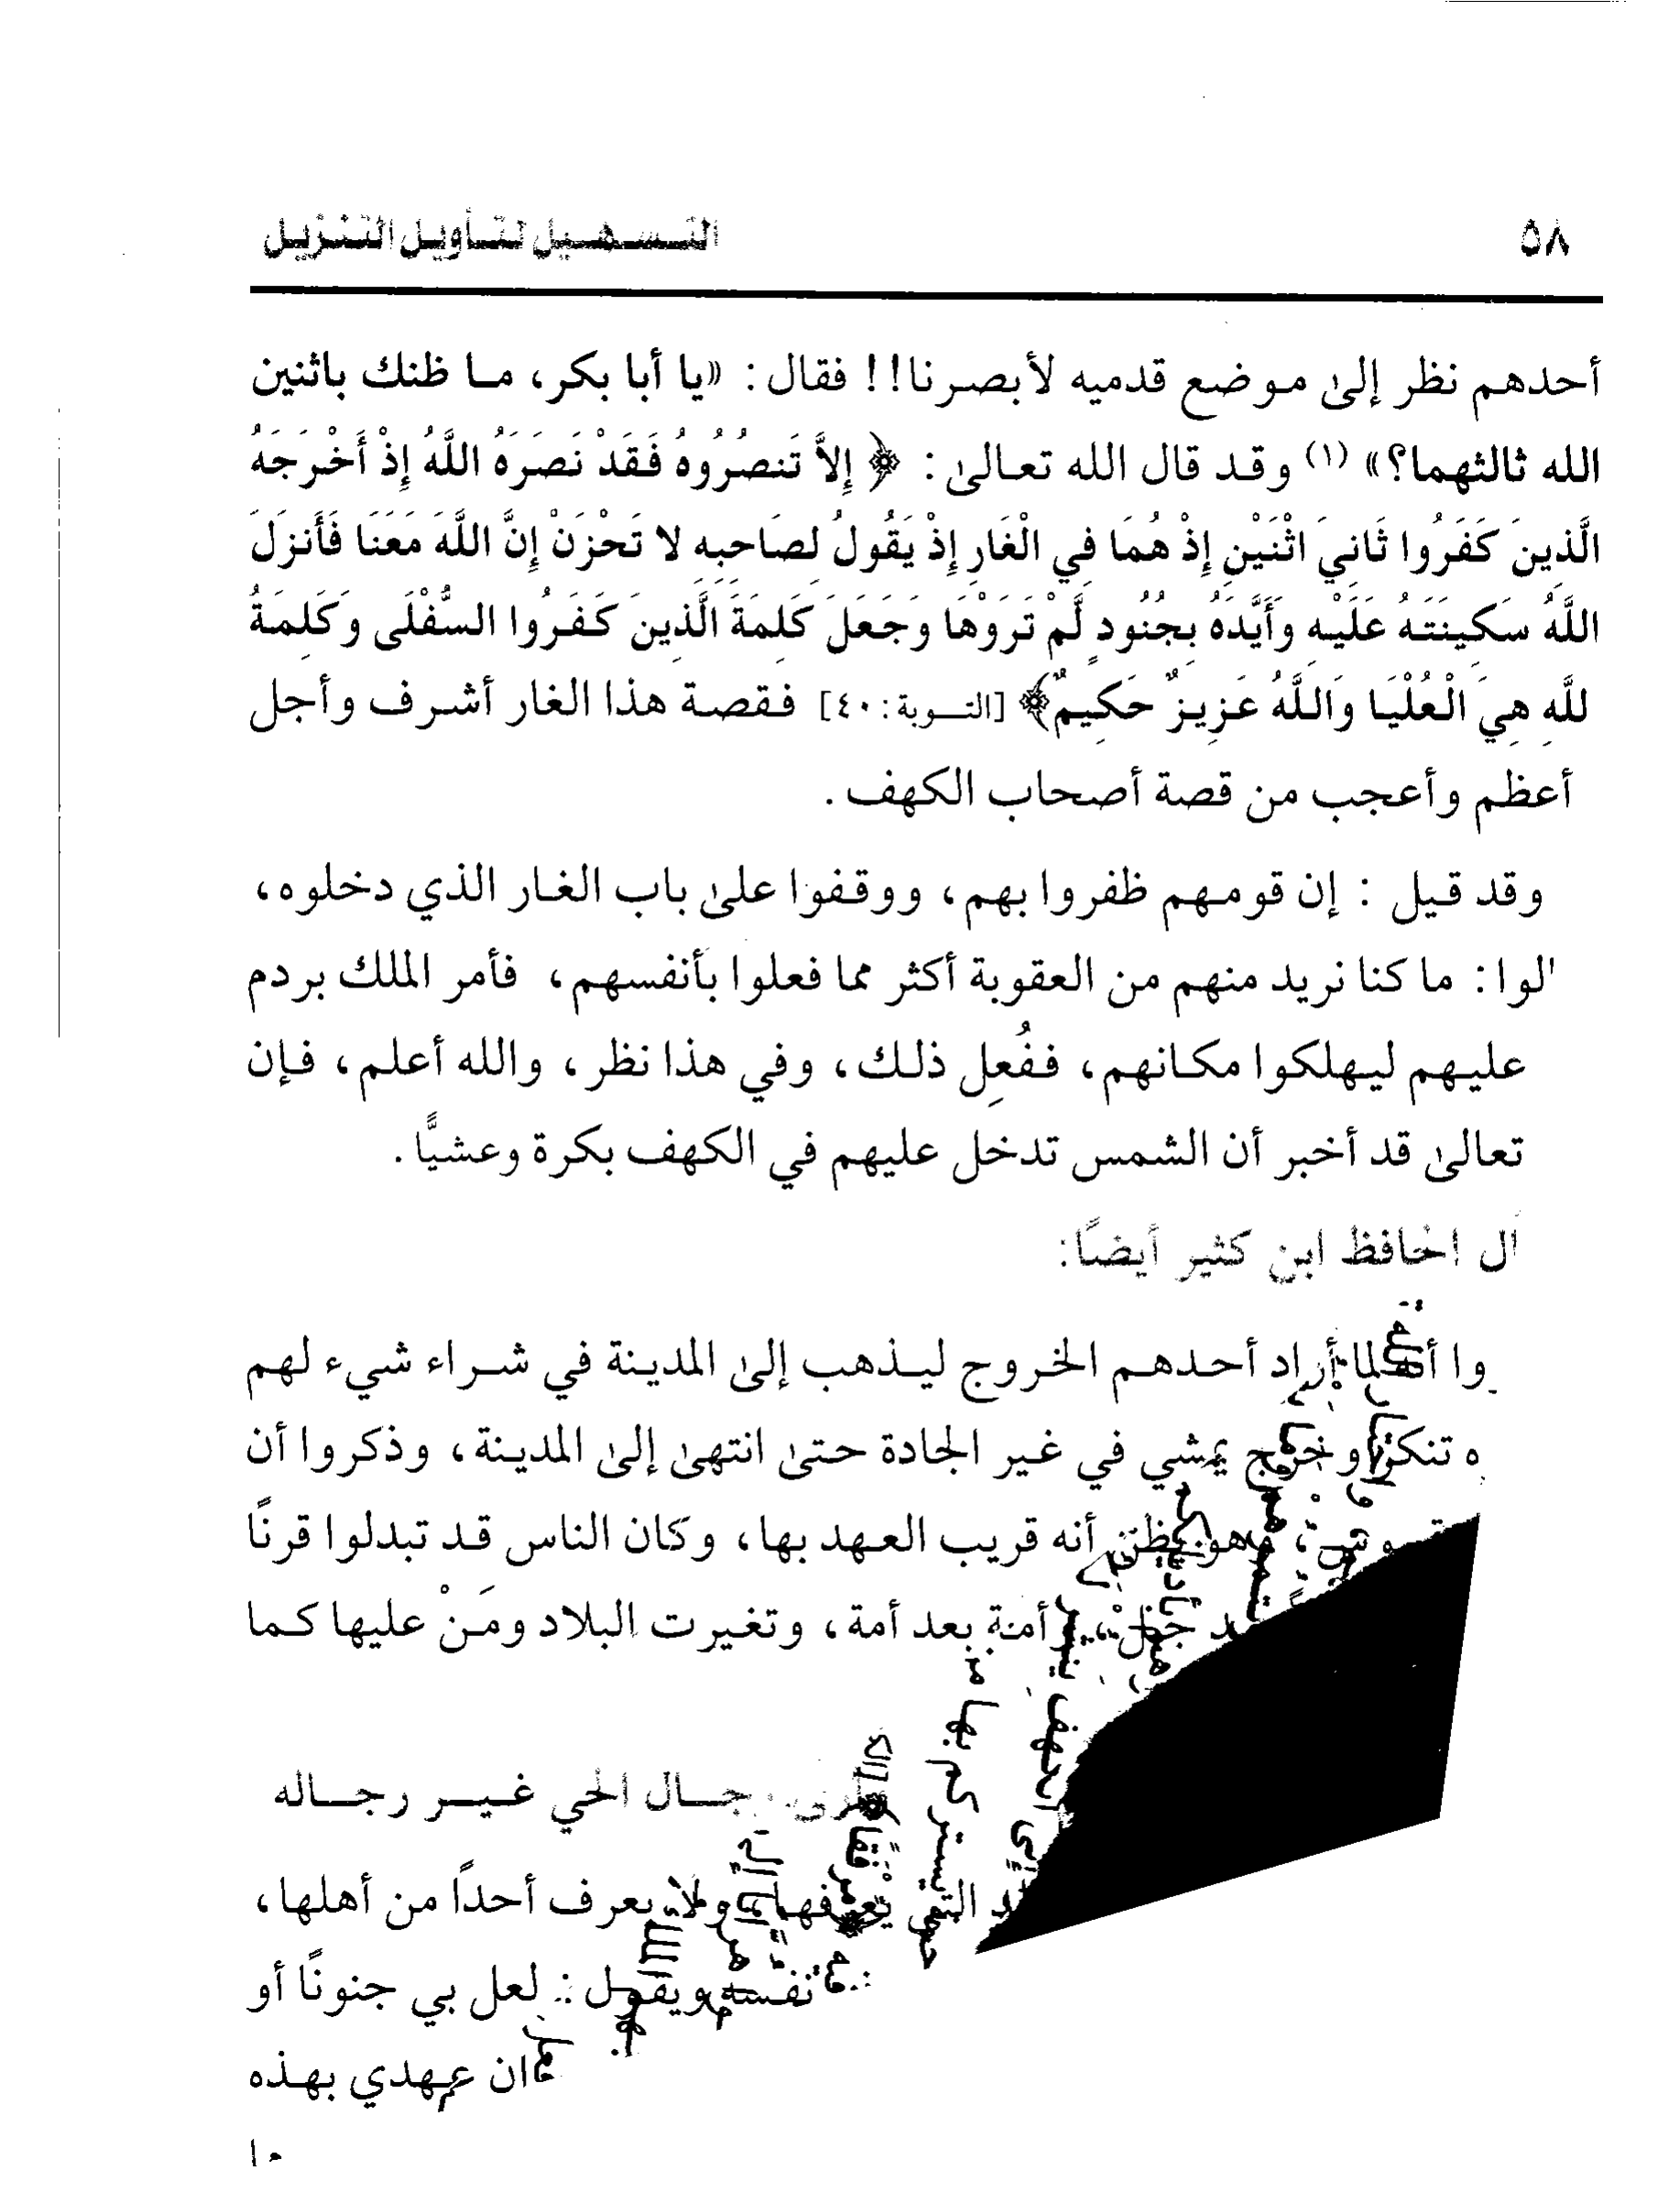 ٥٨ التسهيل لتأويل التنزيل
أحدهم نظر إلى موضع قدميه لأبصرنا!! فقال: «يا أبا بكر، ما ظنك باثنين
الله ثالثهما؟» (١) وقد قال الله تعالى: ﴿ إِلاَّ تَنصُرُوهُ فَقَدْ نَصَرَهُ اللَّهُ إِذْ أَخْرَجَهُ
الَّذِينَ كَفَرُوا ثَانِيَ اثْنَيْنِ إِذْ هُمَا فِي الْغَارِ إِذْ يَقُولُ لِصَاحِبِهِ لا تَحْزَنْ إِنَّ اللَّهَ مَعَنَا فَأَنزَلَ
اللَّهُ سَكِينَتَهُ عَلَيْهِ وَأَيَّدَهُ بِجُنُودٍ لَّمْ تَرَوْهَا وَجَعَلَ كَلِمَةَ الَّذِينَ كَفَرُوا السُّفْلَى وَكَلِمَةُ
للَّهِ هِيَ الْعُلْيَا وَاللَّهُ عَزِيزٌ حَكِيمٌ﴾ [التوبة: ٤٠] فقصة هذا الغار أشرف وأجل
أعظم وأعجب من قصة أصحاب الكهف.
وقد قيل : إن قومهم ظفروا بهم، ووقفوا على باب الغار الذي دخلوه،
الوا: ما كنا نريد منهم من العقوبة أكثر مما فعلوا بأنفسهم، فأمر الملك بردم
عليهم ليهلكوا مكانهم، ففُعِل ذلك، وفي هذا نظر، والله أعلم، فإن
تعالى قد أخبر أن الشمس تدخل عليهم في الكهف بكرة وعشيًّا.
ال الحافظ ابن كثير أيضًا:
أراد أحدهم الخروج ليذهب إلى المدينة في شراء شيء لهم
ه تنكر وخرج يمشي في غير الجادة حتى انتهى إلى المدينة، وذكروا أن
وهو يظن أنه قريب العهد بها، وكان الناس قد تبدلوا قرنًا
أمة بعد أمة، وتغيرت البلاد ومَنْ عليها كما
رجال الحي غير رجاله
التي يعرفها، ولا يعرف أحداً من أهلها،
نفسه ويقول: لعل بي جنونًا أو
عهدي بهذه